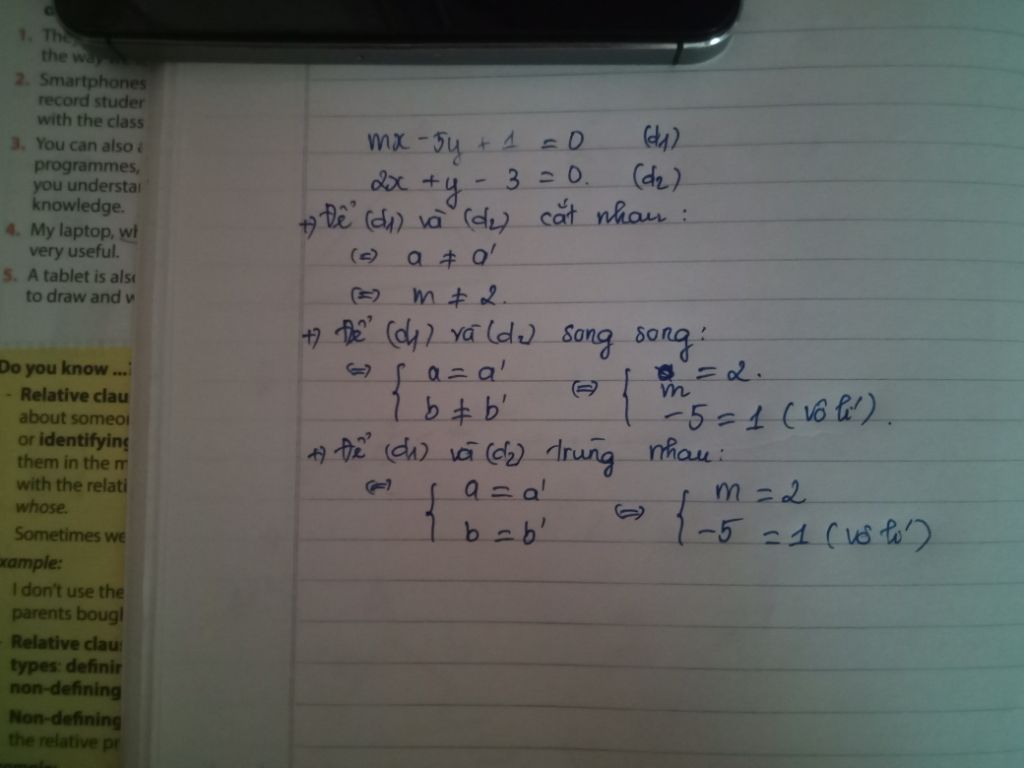 1. The
the way
2. Smartphones
record studer
with the class
3. You can also
programmes,
you understa
knowledge.
4. My laptop, wh
very useful.
5. A tablet is als
to draw and w
Do you know ...?
- Relative clau
about someo
or identifying
them in the m
with the relati
whose.
Sometimes we
xample:
I don't use the
parents bough
Relative clau
types: definin
non-defining
Non-defining
the relative pr
mx - 5y + 1 = 0 (d1)
2x + y - 3 = 0. (d2)
+) Để (d1) và (d2) cắt nhau :
(=) a ≠ a'
(=) m ≠ 2.
+) Để (d1) và (d2) song song :
(=) { a = a' (=) { m = 2.
b ≠ b' -5 = 1 (vô lí).
+) Để (d1) và (d2) trùng nhau :
(=) { a = a' (=) { m = 2
b = b' -5 = 1 (vô lí)